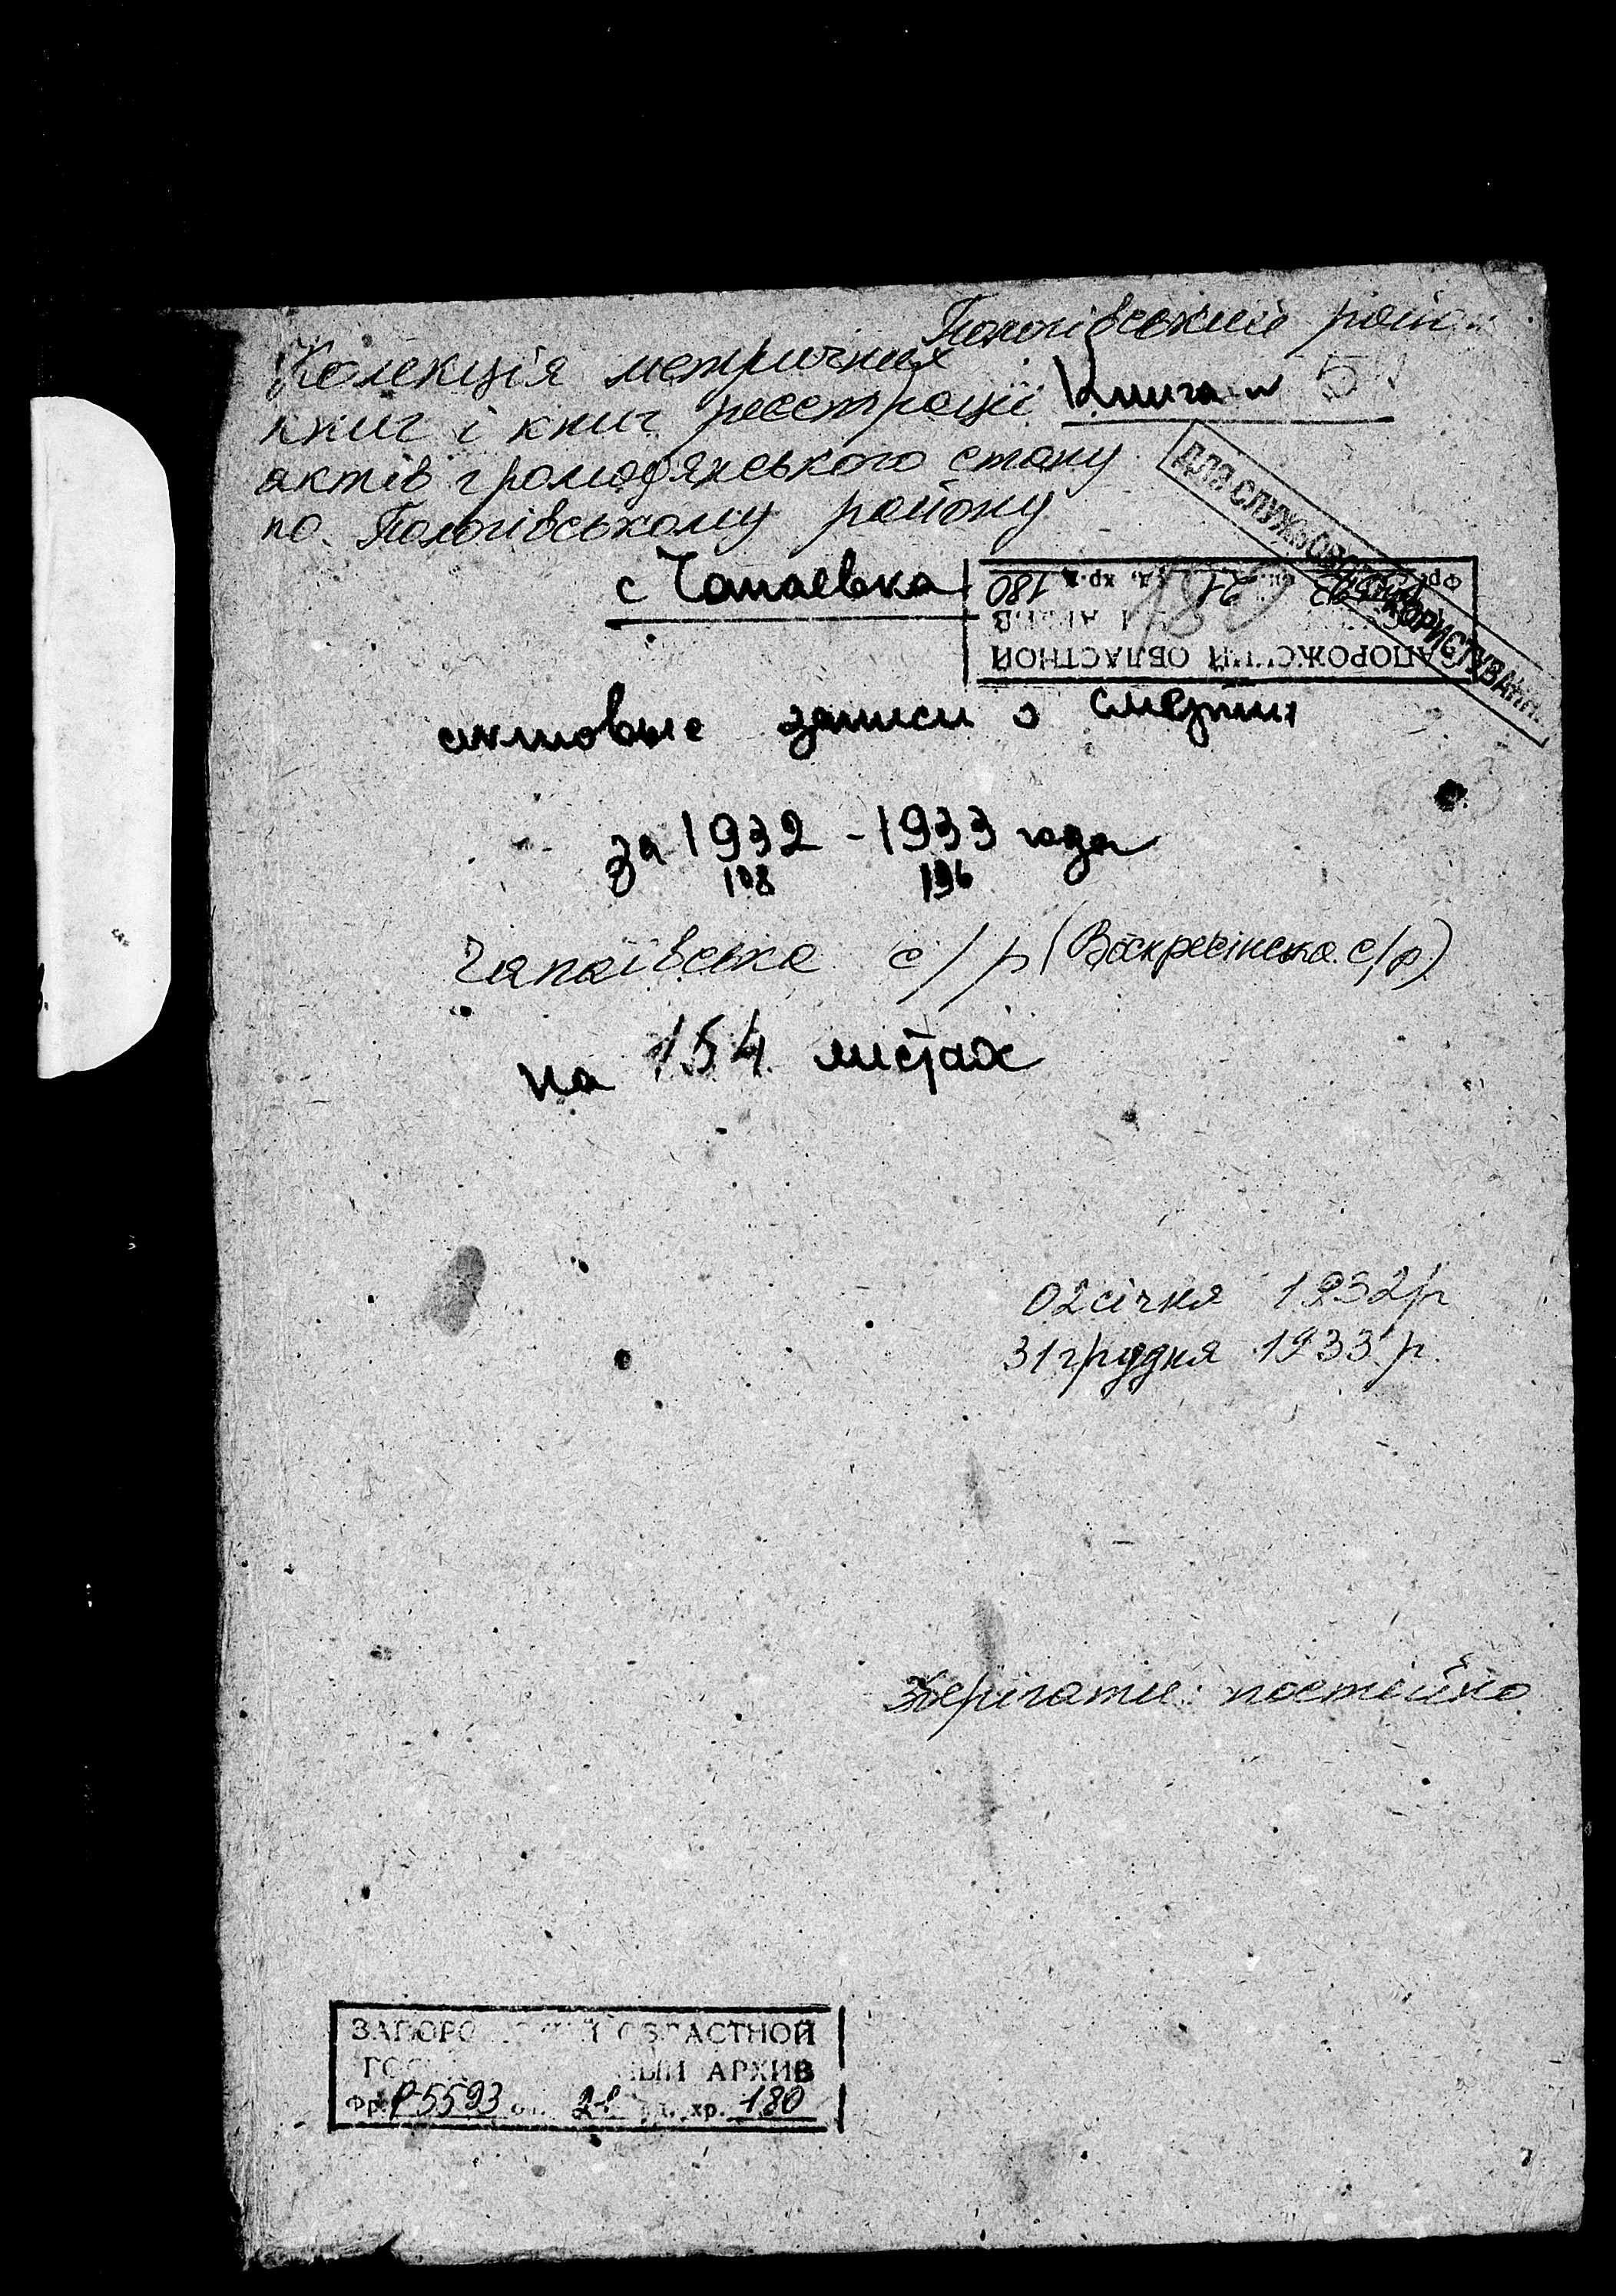 Пологівський район
Колекція метричних
книг і книг реєстрації
Книга № 5
актів громадянського стану
по Пологівському району
ДЛЯ СЛУЖБОВОГО КОРИСТУВАННЯ
с Чапаевка
ЗАПОРОЖСКИЙ ОБЛАСТНОЙ
АРХИВ
Фр. Р-5593 оп. 2 хр. 180
актовые записи о смерти
за 1932 - 1933 года
108 196
Чапаївська с/р (Воскресінська с/р)
на 154 листах
02 січня 1932 р
31 грудня 1933 р.
Зберігати: постійно
ЗАПОРОЖСКИЙ ОБЛАСТНОЙ
ГОСУДАРСТВЕННЫЙ АРХИВ
Фр. Р-5593 оп. 2 ед. хр. 180